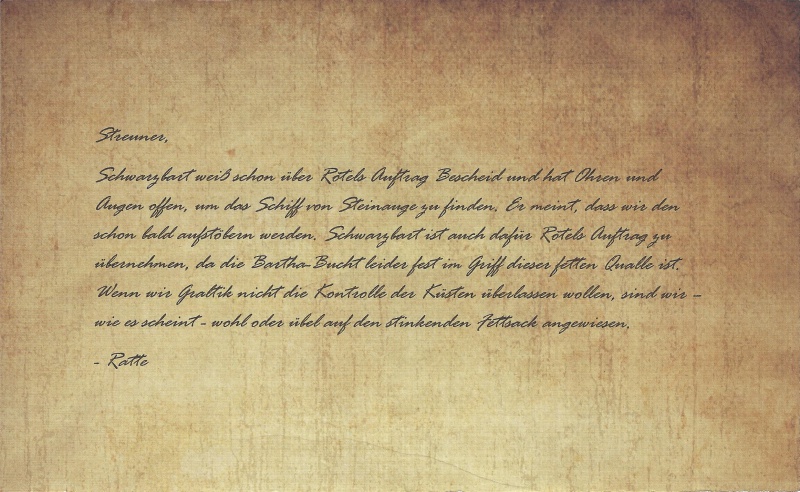 Streuner,
Schwarzbart weiß schon über Rötels Auftrag Bescheid und hat Ohren und
Augen offen, um das Schiff von Steinauge zu finden. Er meint, dass wir den
schon bald aufstöbern werden. Schwarzbart ist auch dafür Rötels Auftrag zu
übernehmen, da die Bartha-Bucht leider fest im Griff dieser fetten Qualle ist.
Wenn wir Graltik nicht die Kontrolle der Küsten überlassen wollen, sind wir –
wie es scheint - wohl oder übel auf den stinkenden Fettsack angewiesen.
- Ratte